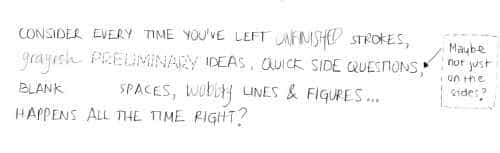 CONSIDER EVERY TIME YOU'VE LEFT UNFINISHED STROKES,
grayish PRELIMINARY IDEAS, QUICK SIDE QUESTIONS,
BLANK SPACES, wobbly LINES & FIGURES...
HAPPENS ALL THE TIME RIGHT?
Maybe
not just
on the
sides?